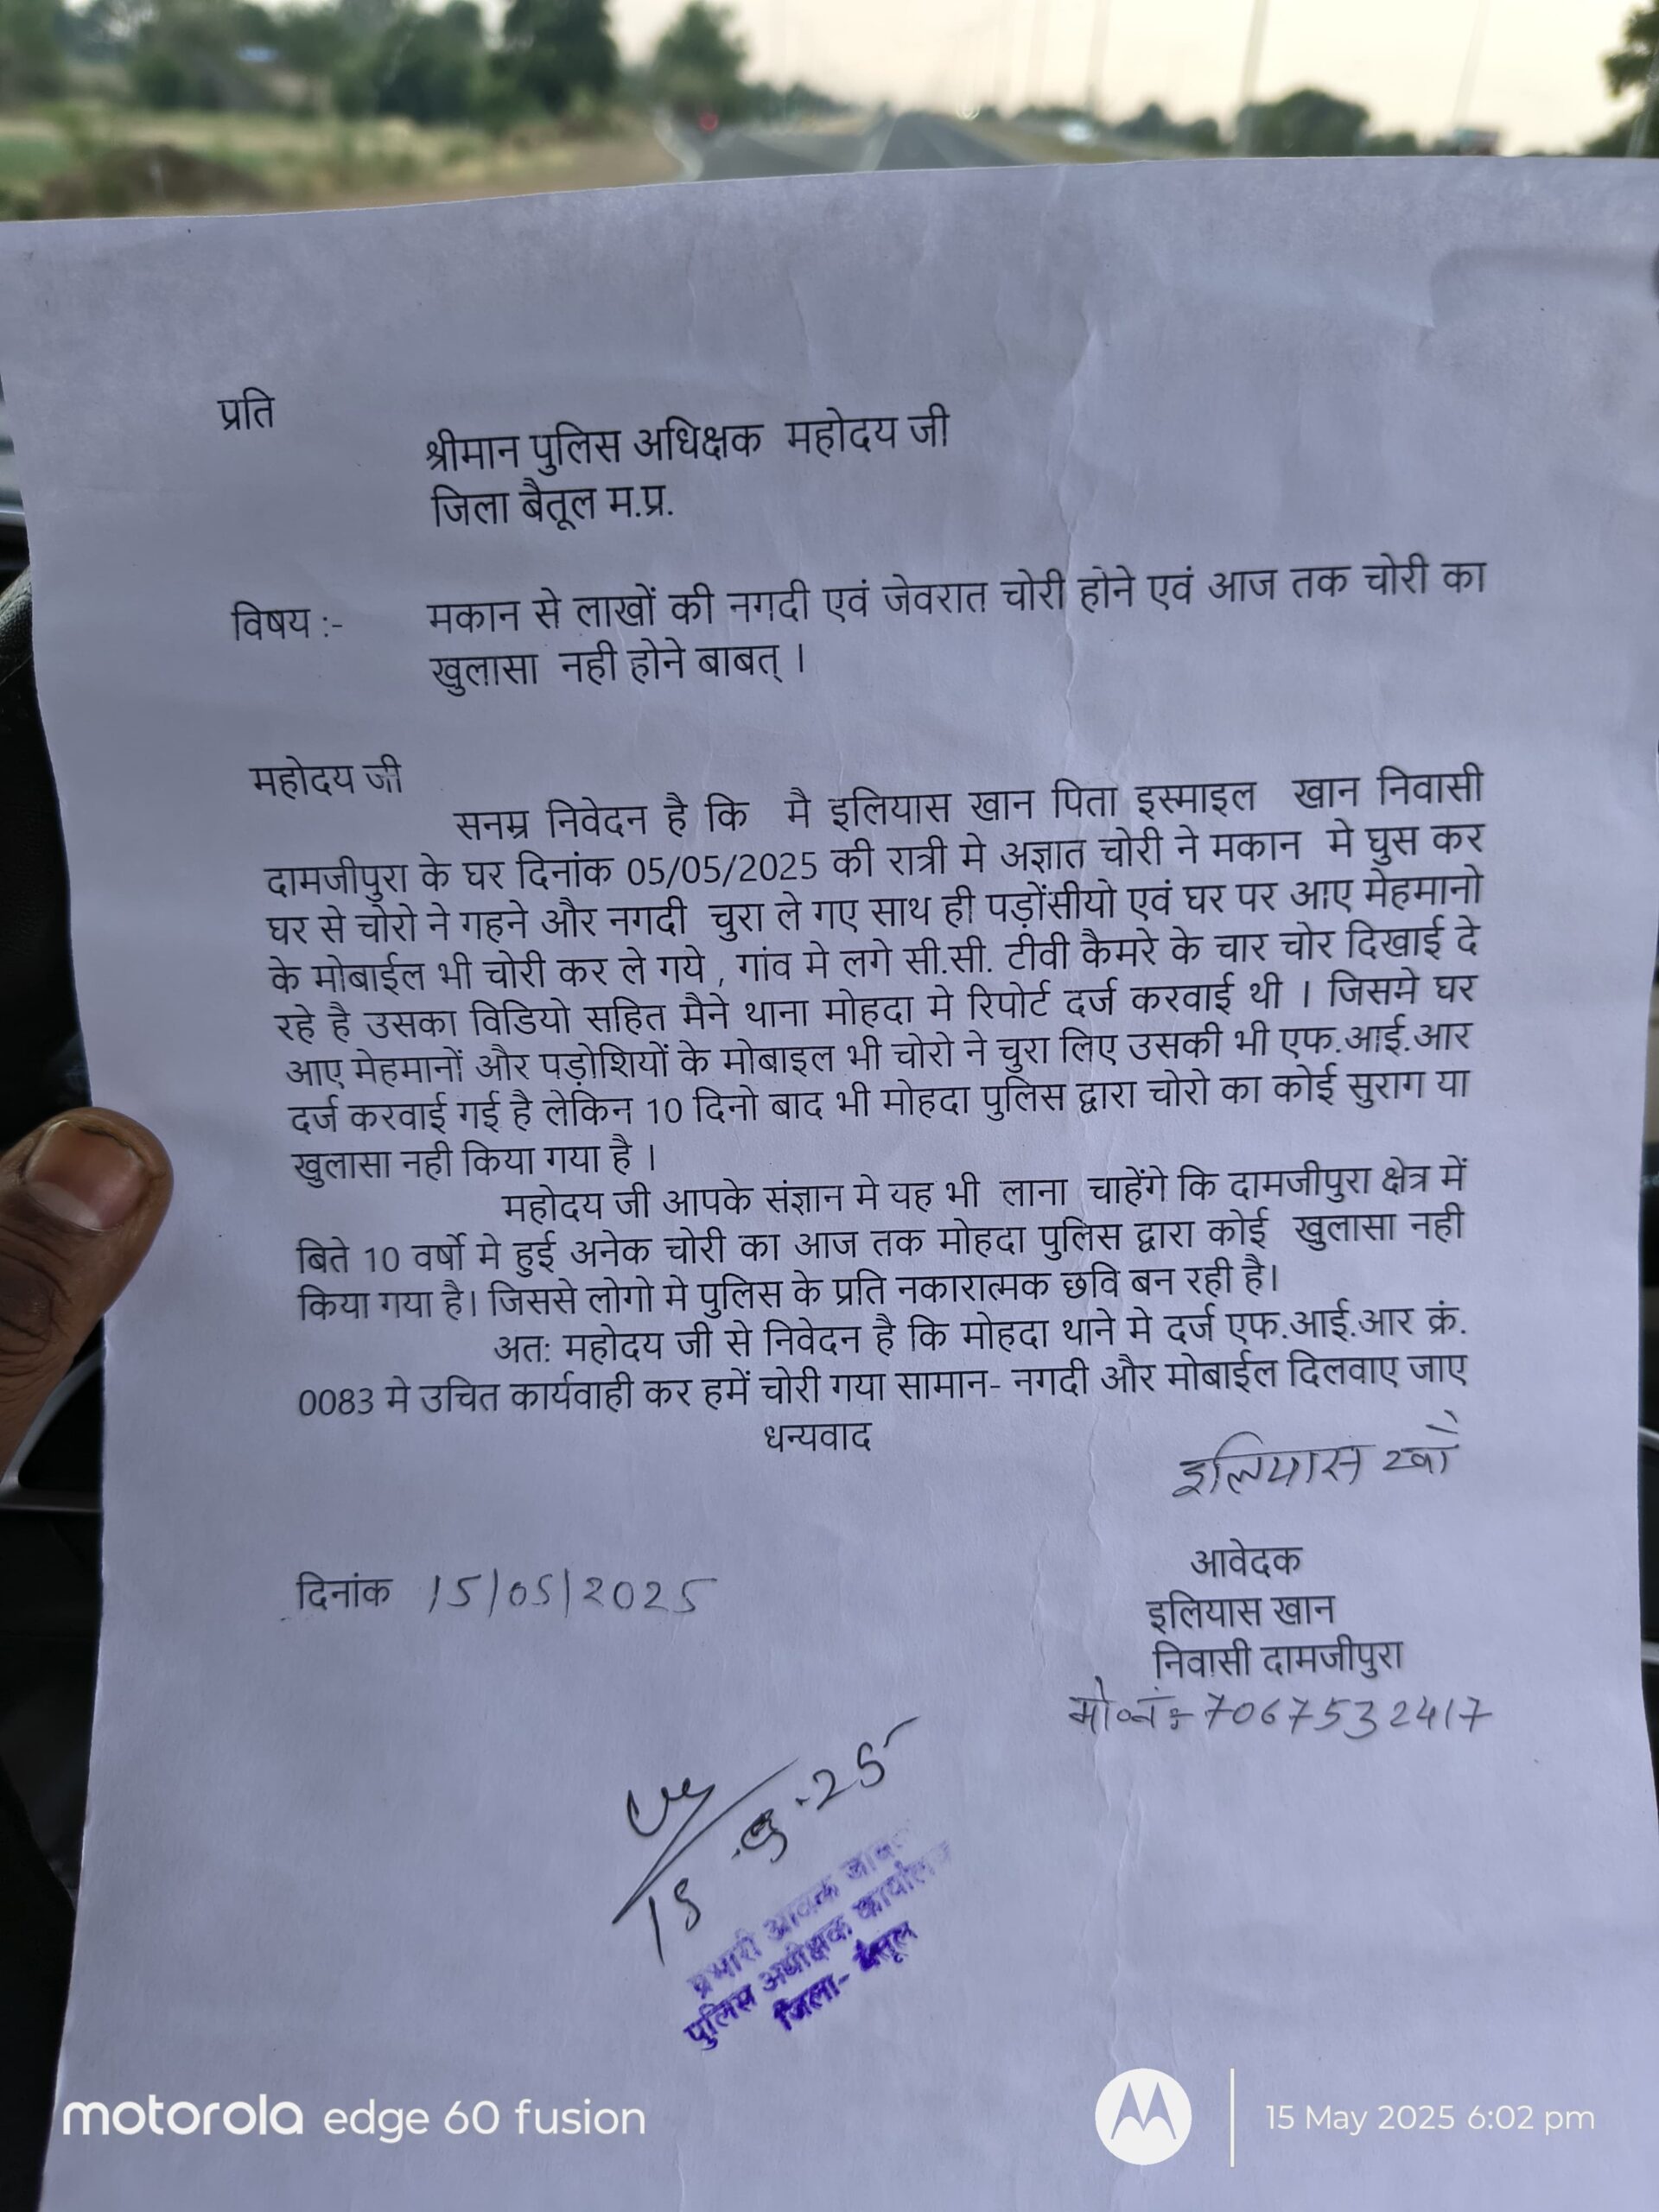 प्रति
श्रीमान पुलिस अधिक्षक महोदय जी
जिला बैतूल म.प्र.
विषय :- मकान से लाखों की नगदी एवं जेवरात चोरी होने एवं आज तक चोरी का
खुलासा नही होने बाबत् ।
महोदय जी
सनम्र निवेदन है कि मै इलियास खान पिता इस्माइल खान निवासी
दामजीपुरा के घर दिनांक 05/05/2025 की रात्री मे अज्ञात चोरी ने मकान मे घुस कर
घर से चोरो ने गहने और नगदी चुरा ले गए साथ ही पड़ोंसीयो एवं घर पर आए मेहमानो
के मोबाईल भी चोरी कर ले गये , गांव मे लगे सी.सी. टीवी कैमरे के चार चोर दिखाई दे
रहे है उसका विडियो सहित मैने थाना मोहदा मे रिपोर्ट दर्ज करवाई थी । जिसमे घर
आए मेहमानों और पड़ोशियों के मोबाइल भी चोरो ने चुरा लिए उसकी भी एफ.आई.आर
दर्ज करवाई गई है लेकिन 10 दिनो बाद भी मोहदा पुलिस द्वारा चोरो का कोई सुराग या
खुलासा नही किया गया है ।
महोदय जी आपके संज्ञान मे यह भी लाना चाहेंगे कि दामजीपुरा क्षेत्र में
बिते 10 वर्षो मे हुई अनेक चोरी का आज तक मोहदा पुलिस द्वारा कोई खुलासा नही
किया गया है। जिससे लोगो मे पुलिस के प्रति नकारात्मक छवि बन रही है।
अतः महोदय जी से निवेदन है कि मोहदा थाने मे दर्ज एफ.आई.आर क्रं.
0083 मे उचित कार्यवाही कर हमें चोरी गया सामान- नगदी और मोबाईल दिलवाए जाए
धन्यवाद
इलियास खाँ
आवेदक
दिनांक 15/05/2025
इलियास खान
निवासी दामजीपुरा
मो०नं० 7067532417
प्रभारी आवक
पुलिस अधीक्षक कार्यालय
जिला- बैतूल
motorola edge 60 fusion
15 May 2025 6:02 pm